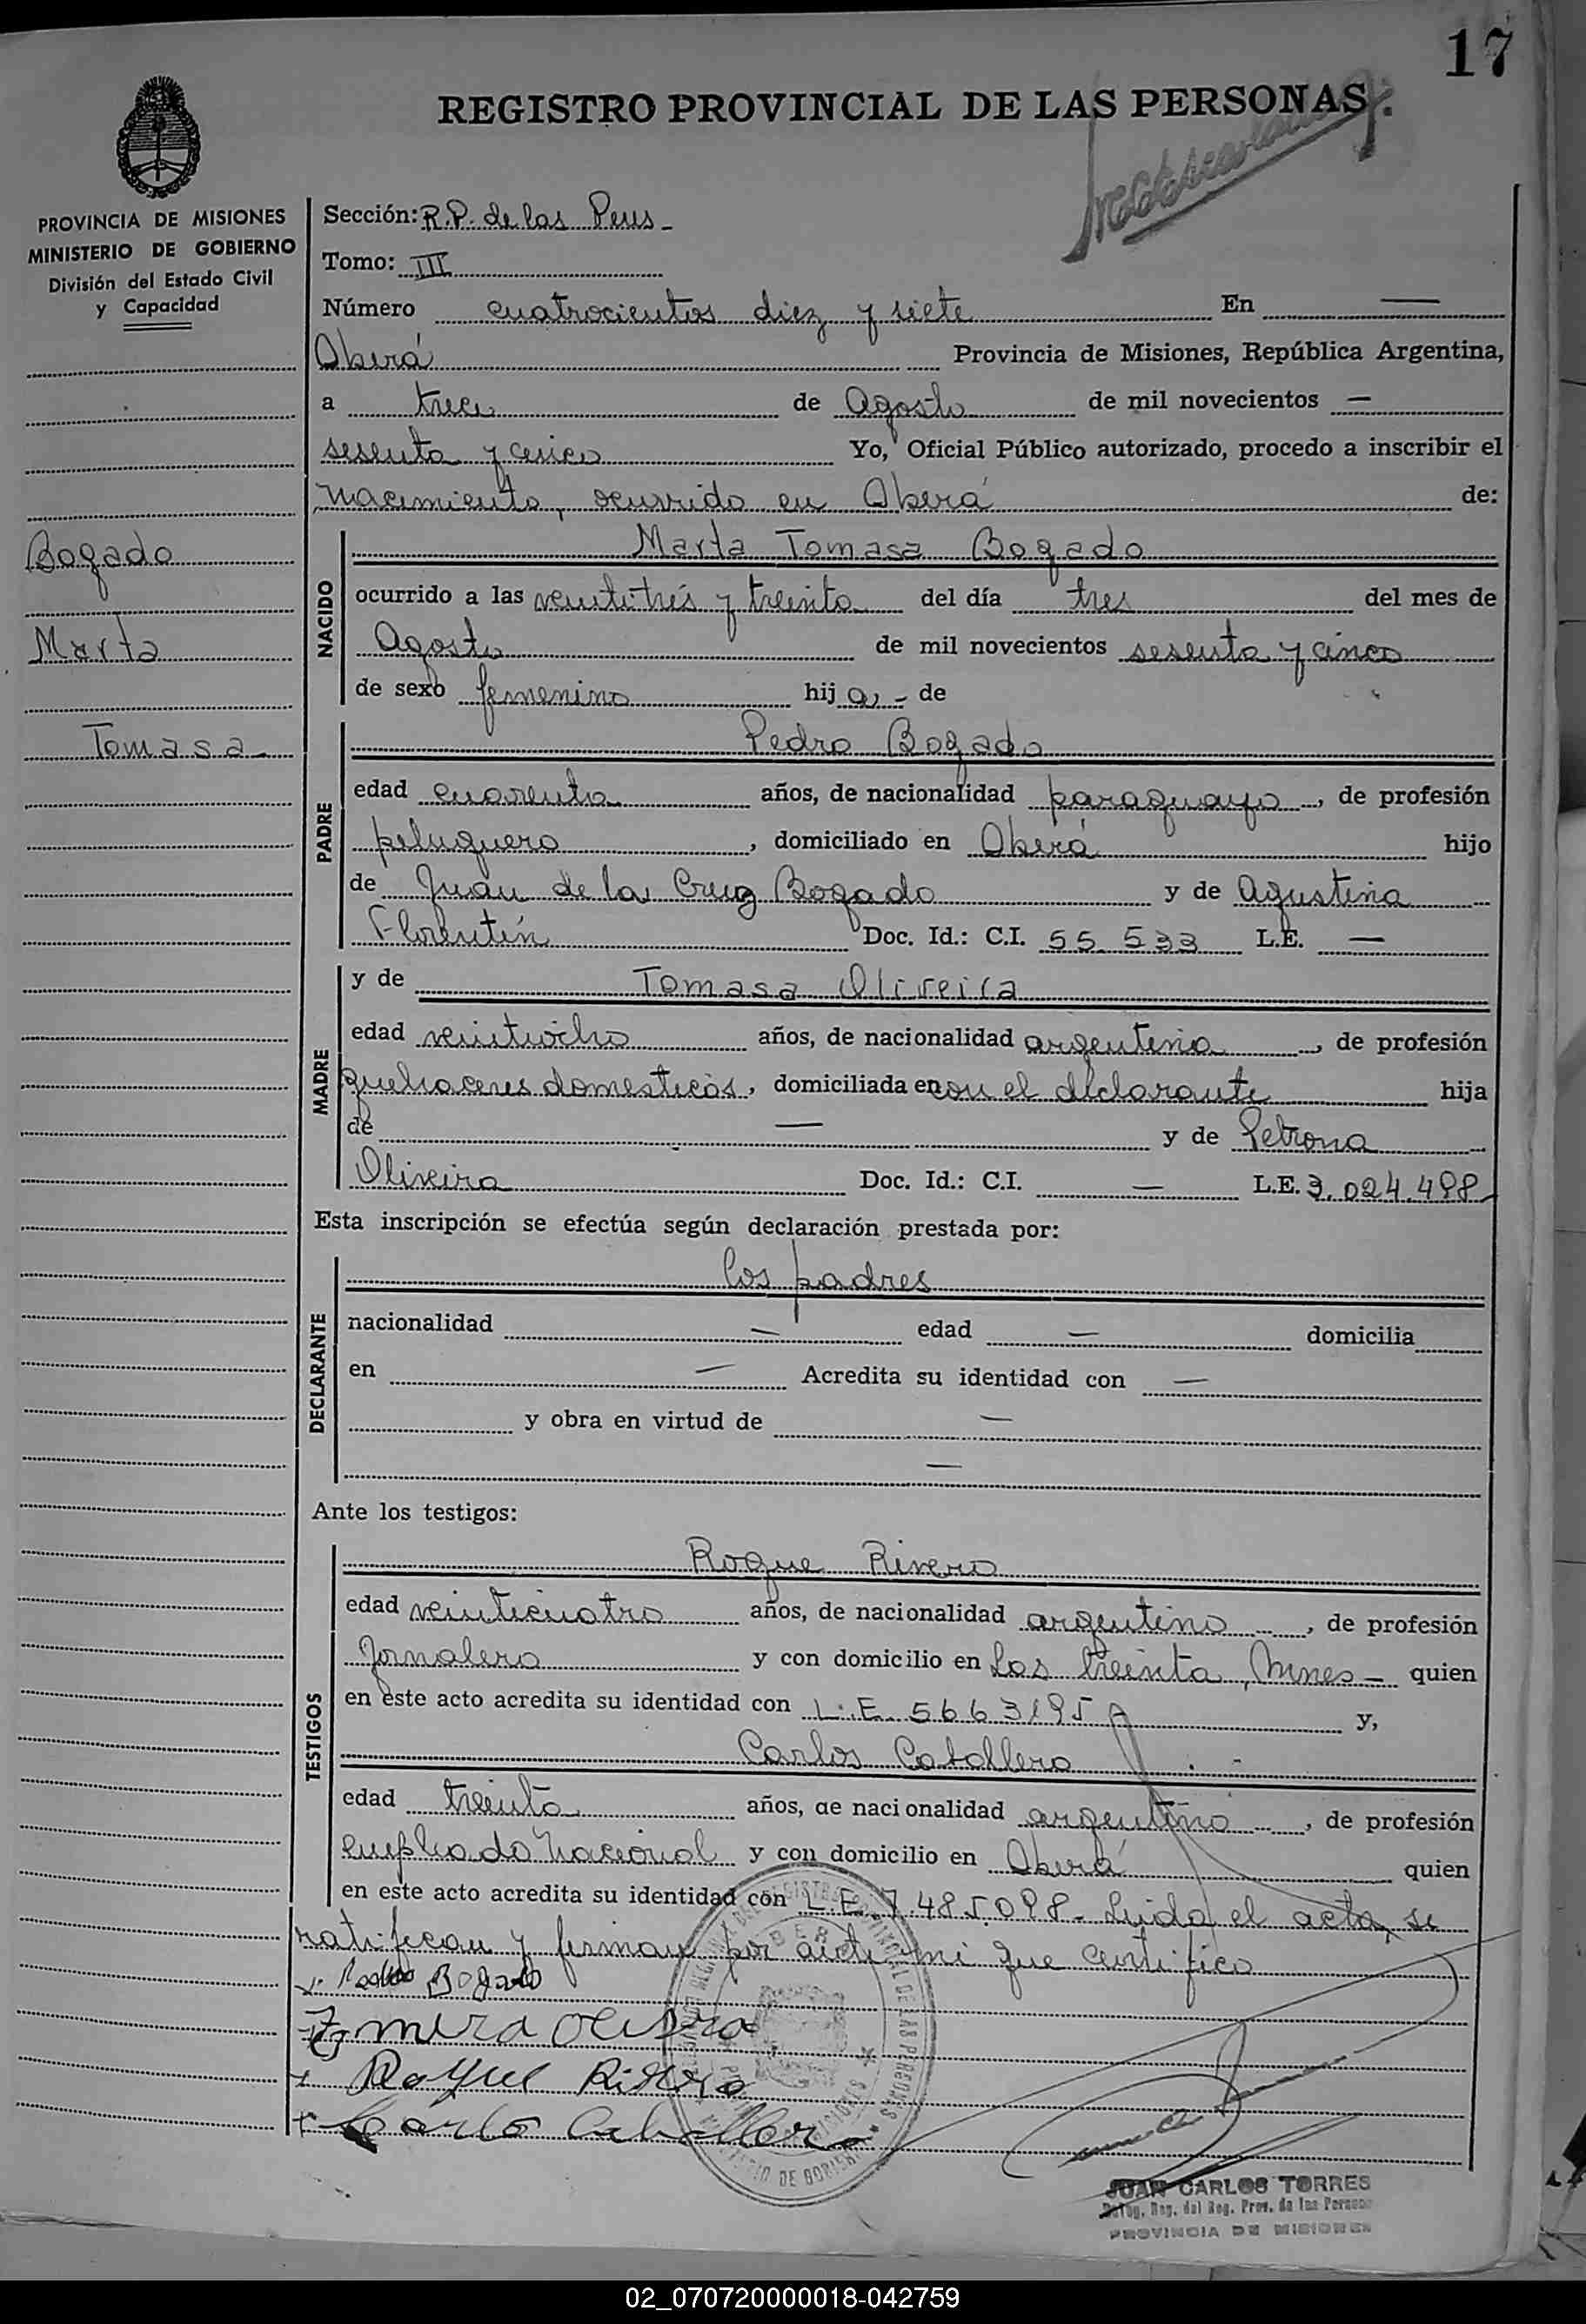 17
REGISTRO PROVINCIAL DE LAS PERSONAS
PROVINCIA DE MISIONES
MINISTERIO DE GOBIERNO
División del Estado Civil
y Capacidad
Bogado
Marta
Tomasa
Sección: R.P. de las Pers
Tomo: III
Número cuatrocientos diez y siete En —
Oberá Provincia de Misiones, República Argentina,
a trece de Agosto de mil novecientos —
sesenta y cinco Yo, Oficial Público autorizado, procedo a inscribir el
nacimiento, ocurrido en Oberá de:
NACIDO
Marta Tomasa Bogado
ocurrido a las veintitrés y treinta del día tres del mes de
Agosto de mil novecientos sesenta y cinco
de sexo femenino hija - de
PADRE
Pedro Bogado
edad cuarenta años, de nacionalidad paraguayo, de profesión
peluquero, domiciliado en Oberá hijo
de Juan de la Cruz Bogado y de Agustina
Florentín Doc. Id.: C.I. 55.533 L.E. —
MADRE
y de Tomasa Oliveira
edad veintiocho años, de nacionalidad argentina, de profesión
quehaceres domesticos, domiciliada en con el declarante hija
de — y de Petrona
Oliveira Doc. Id.: C.I. — L.E. 3.024.498
Esta inscripción se efectúa según declaración prestada por:
DECLARANTE
los padres
nacionalidad — edad — domicilia
en — Acredita su identidad con —
y obra en virtud de —
—
Ante los testigos:
TESTIGOS
Roque Rivero
edad veinticuatro años, de nacionalidad argentino, de profesión
Jornalero y con domicilio en Los treinta, Mnes - quien
en este acto acredita su identidad con L.E. 5663195 y,
Carlos Caballero
edad treinta años, de nacionalidad argentino, de profesión
empleado nacional y con domicilio en Oberá quien
en este acto acredita su identidad con L.E. 7.485.098- Leida el acta, se
ratifican y firman por ante mi que certifico
Bogado
Roque Rivero
Carlo Caballero
JUAN CARLOS TORRES
Deleg. Reg. del Reg. Prov. de las Personas
PROVINCIA DE MISIONES
02_070720000018-042759